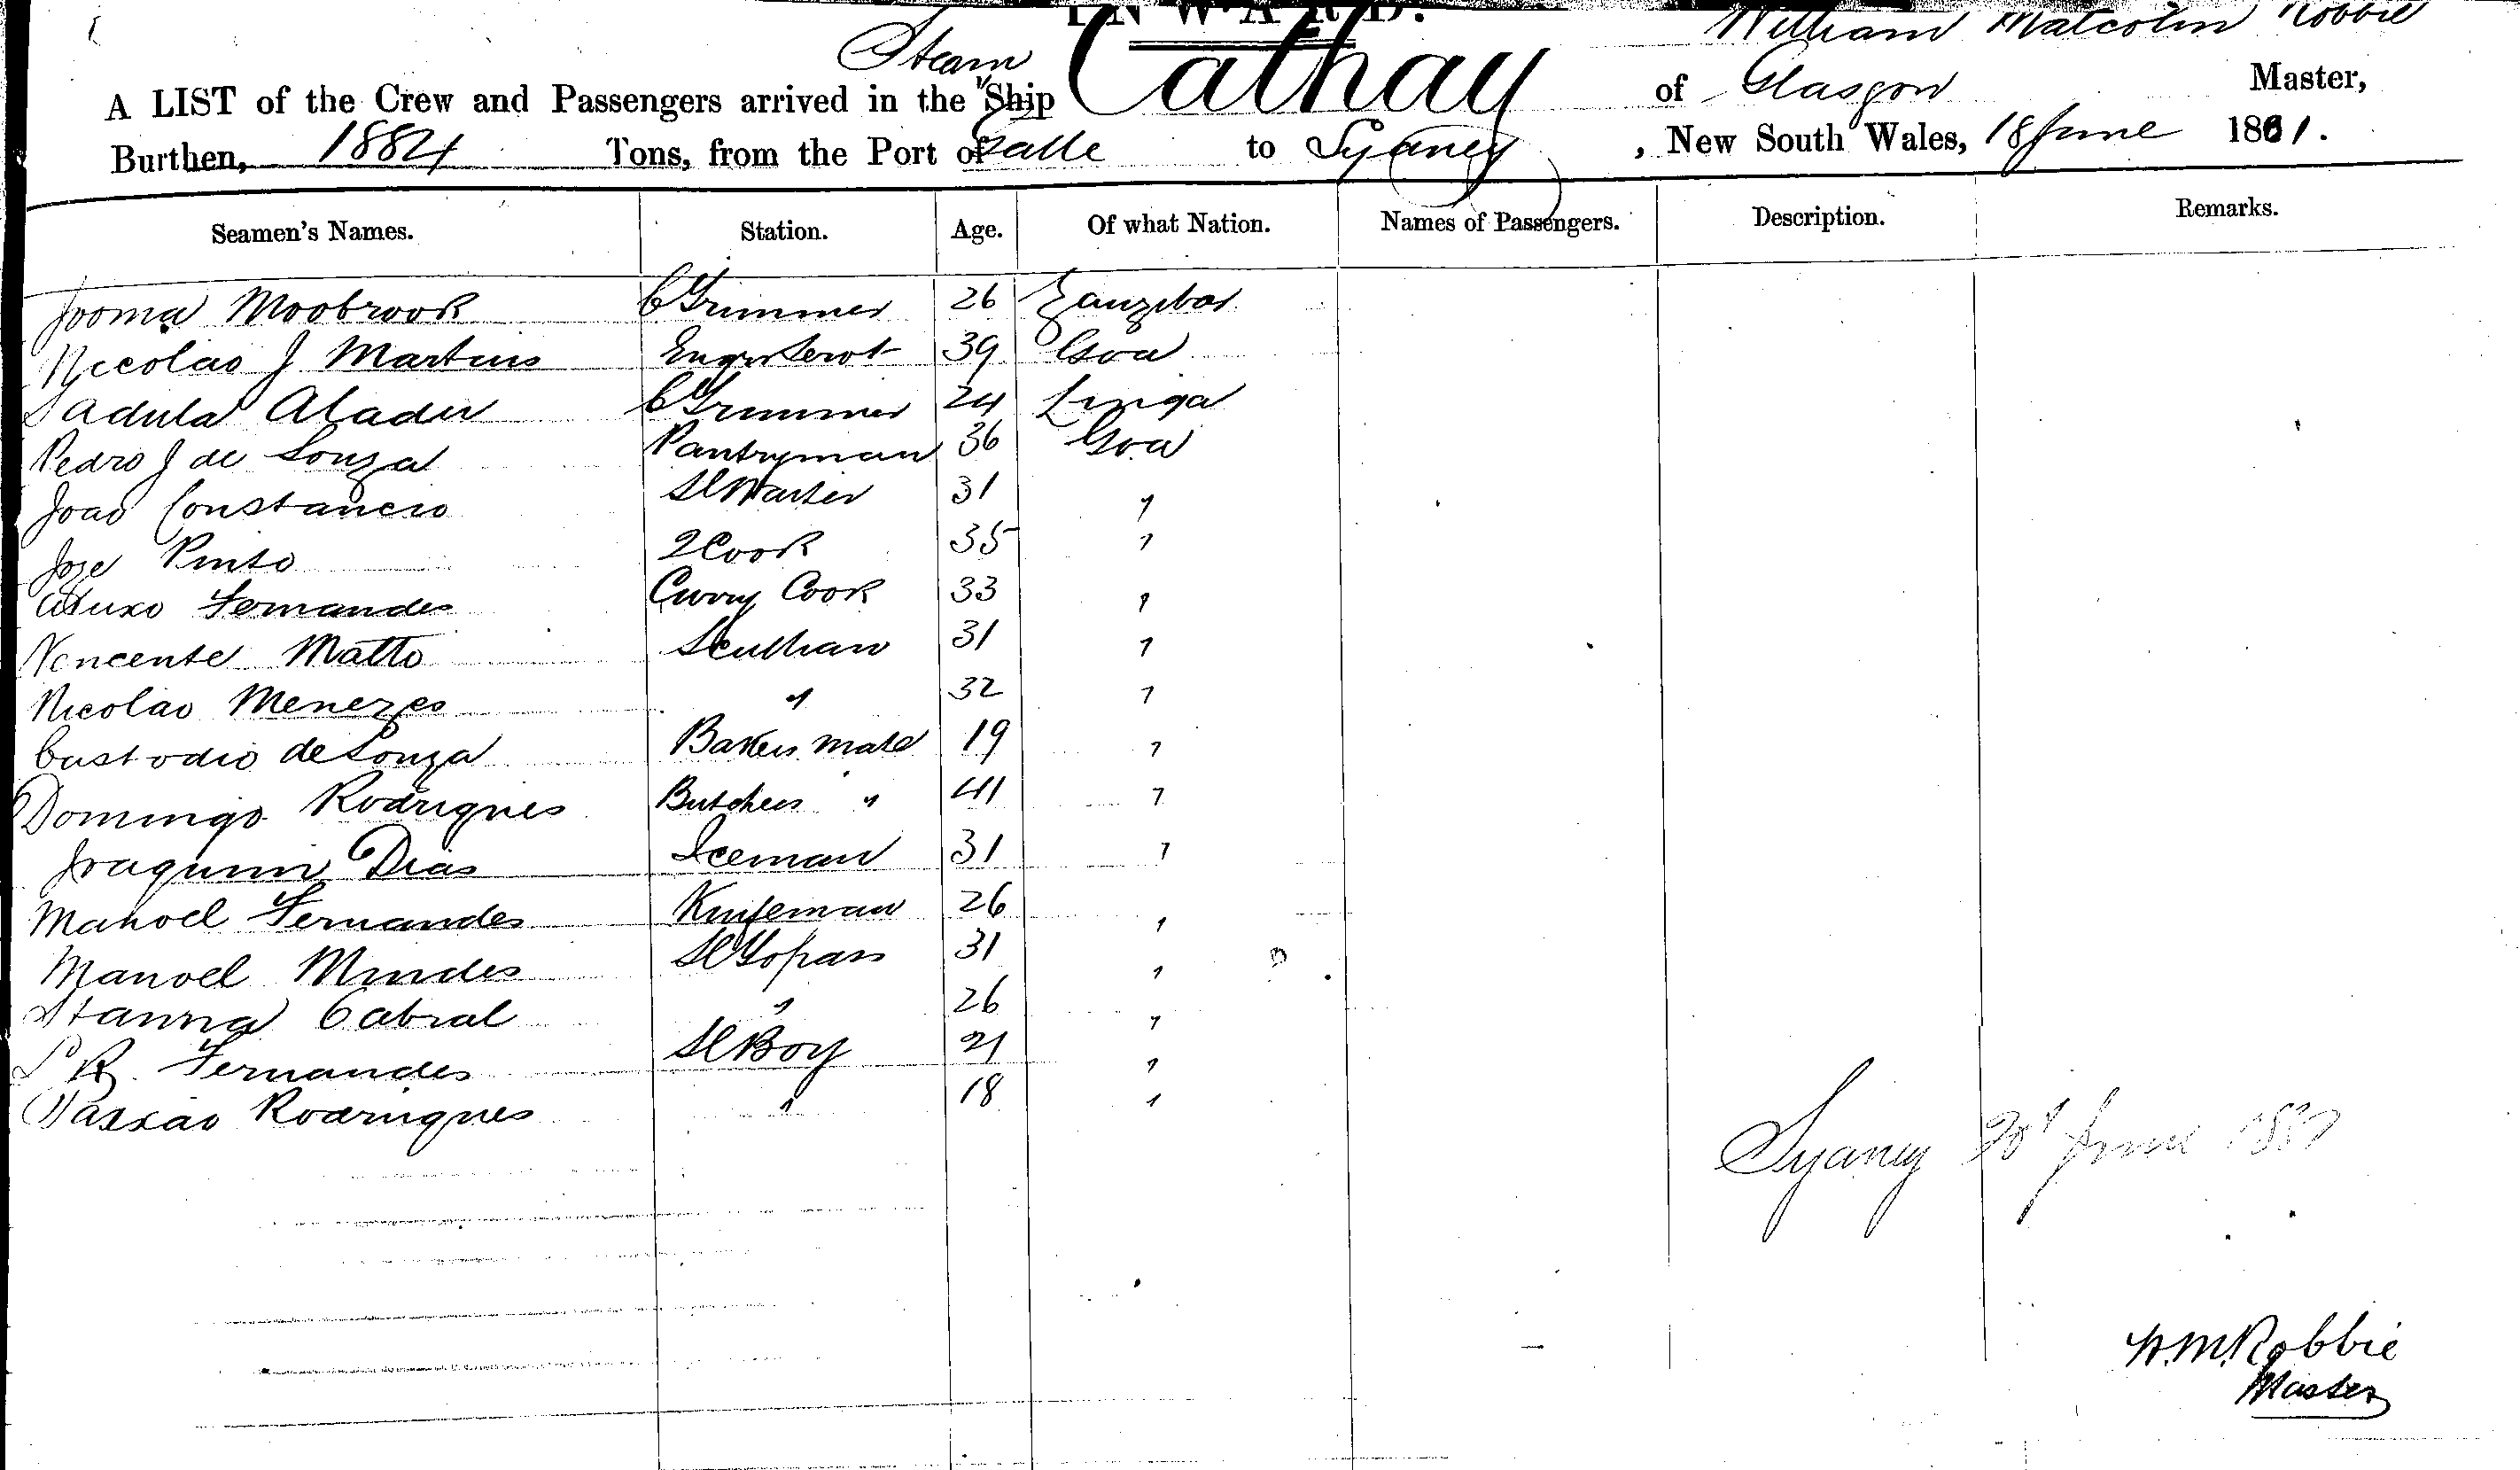 INWARD.
William Malcolm Robbie
Steam
A LIST of the Crew and Passengers arrived in the Ship Cathay of Glasgow Master,
Burthen, 1884 Tons, from the Port of Galle to Sydney, New South Wales, 18 June 1881.
Seamen's Names. Station. Age. Of what Nation. Names of Passengers. Description. Remarks.
Jooma Moobrook C Trimmer 26 Zanzibar
Niccolao J Martins Engrs Servt 39 Goa
Sadula Alader C Trimmer 24 Linga
Pedro J de Souza Pantryman 36 Goa
Joao Constancio 31 "
Joze Pinto 2 Cook 35 "
Fernandes Curry Cook 33 "
Vencente Matto Scullian 31 "
Nicolao Menezes " 32 "
Custodio de Souza Bakers mate 19 "
Domingo Rodrigues Butchers " 41 "
Joaquim Dias Iceman 31 "
Manoel Fernandes Knifeman 26 "
Manoel Mendes SC Topass 31 "
Cabral " 26 "
Fernandes SC Boy 21 "
Passao Rodrigues " 18 "
Sydney 20 June
W.M. Robbie
Master